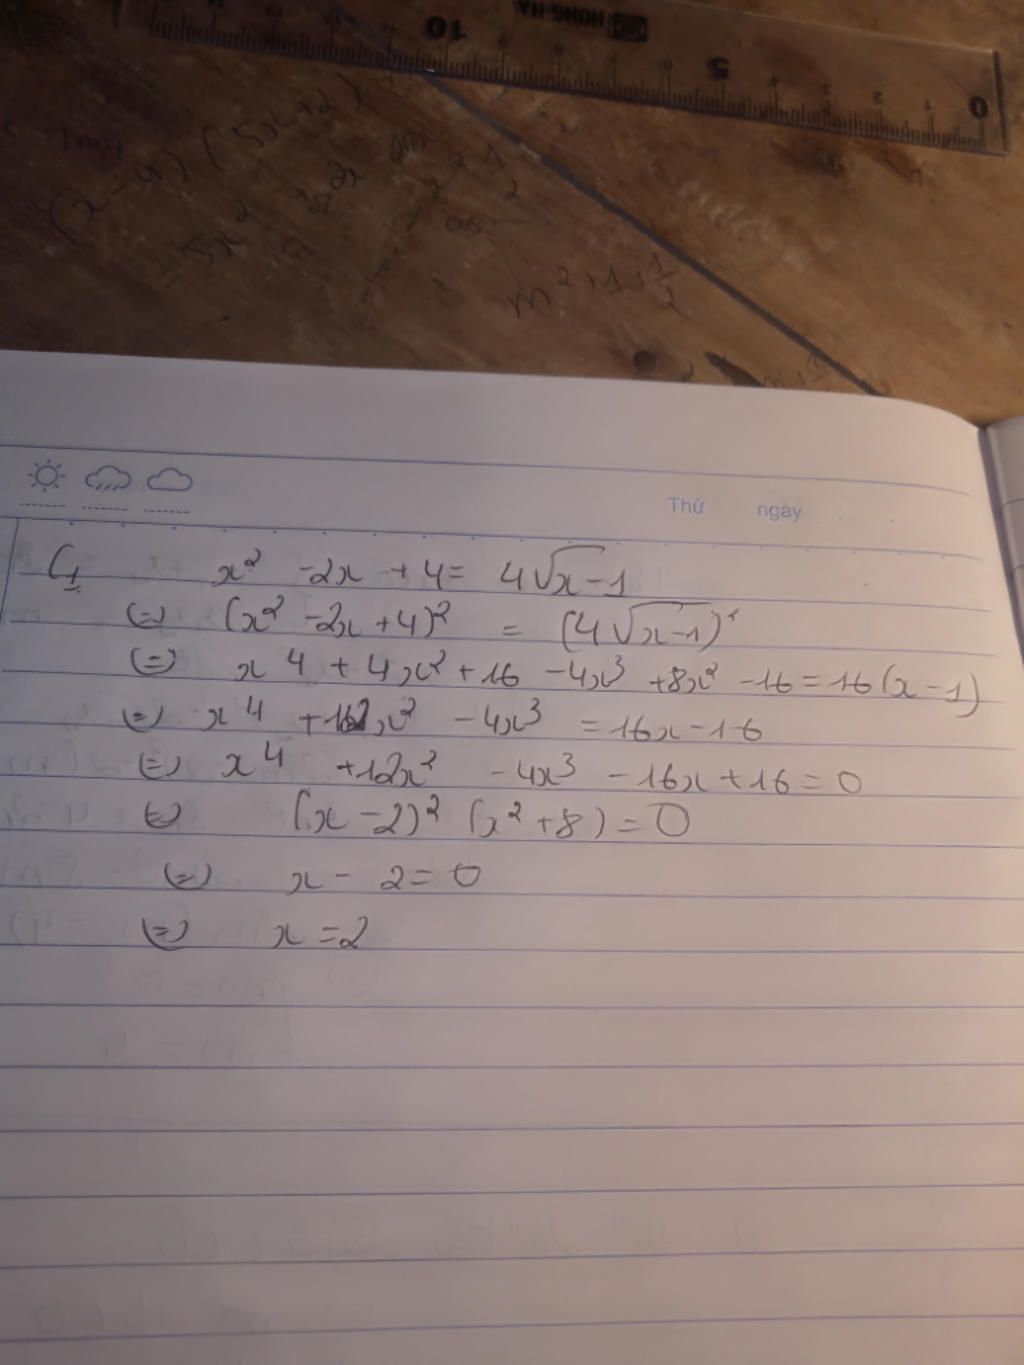 HONG HA
10 5 0
(x - 4) (5x + 2)
5x²
m² + 1 + 1/2
Thứ ngày
C1 x² - 2x + 4 = 4√x-1
(=) (x² - 2x + 4)² = (4√x-1)²
(=) x4 + 4x² + 16 - 4x³ + 8x² - 16 = 16(x - 1)
(=) x4 + 12x² - 4x³ = 16x - 16
(=) x4 + 12x² - 4x³ - 16x + 16 = 0
(=) (x - 2)² (x² + 8) = 0
(=) x - 2 = 0
(=) x = 2